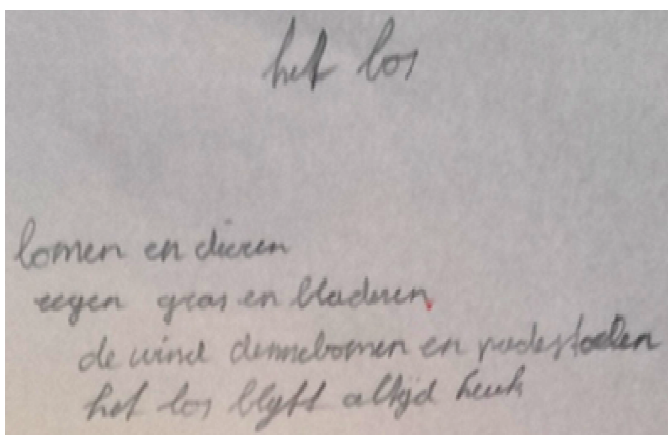 het bos
bomen en dieren
regen gras en bladeren,
de wind dennebomen en padestoelen
het bos blijft altijd leuk